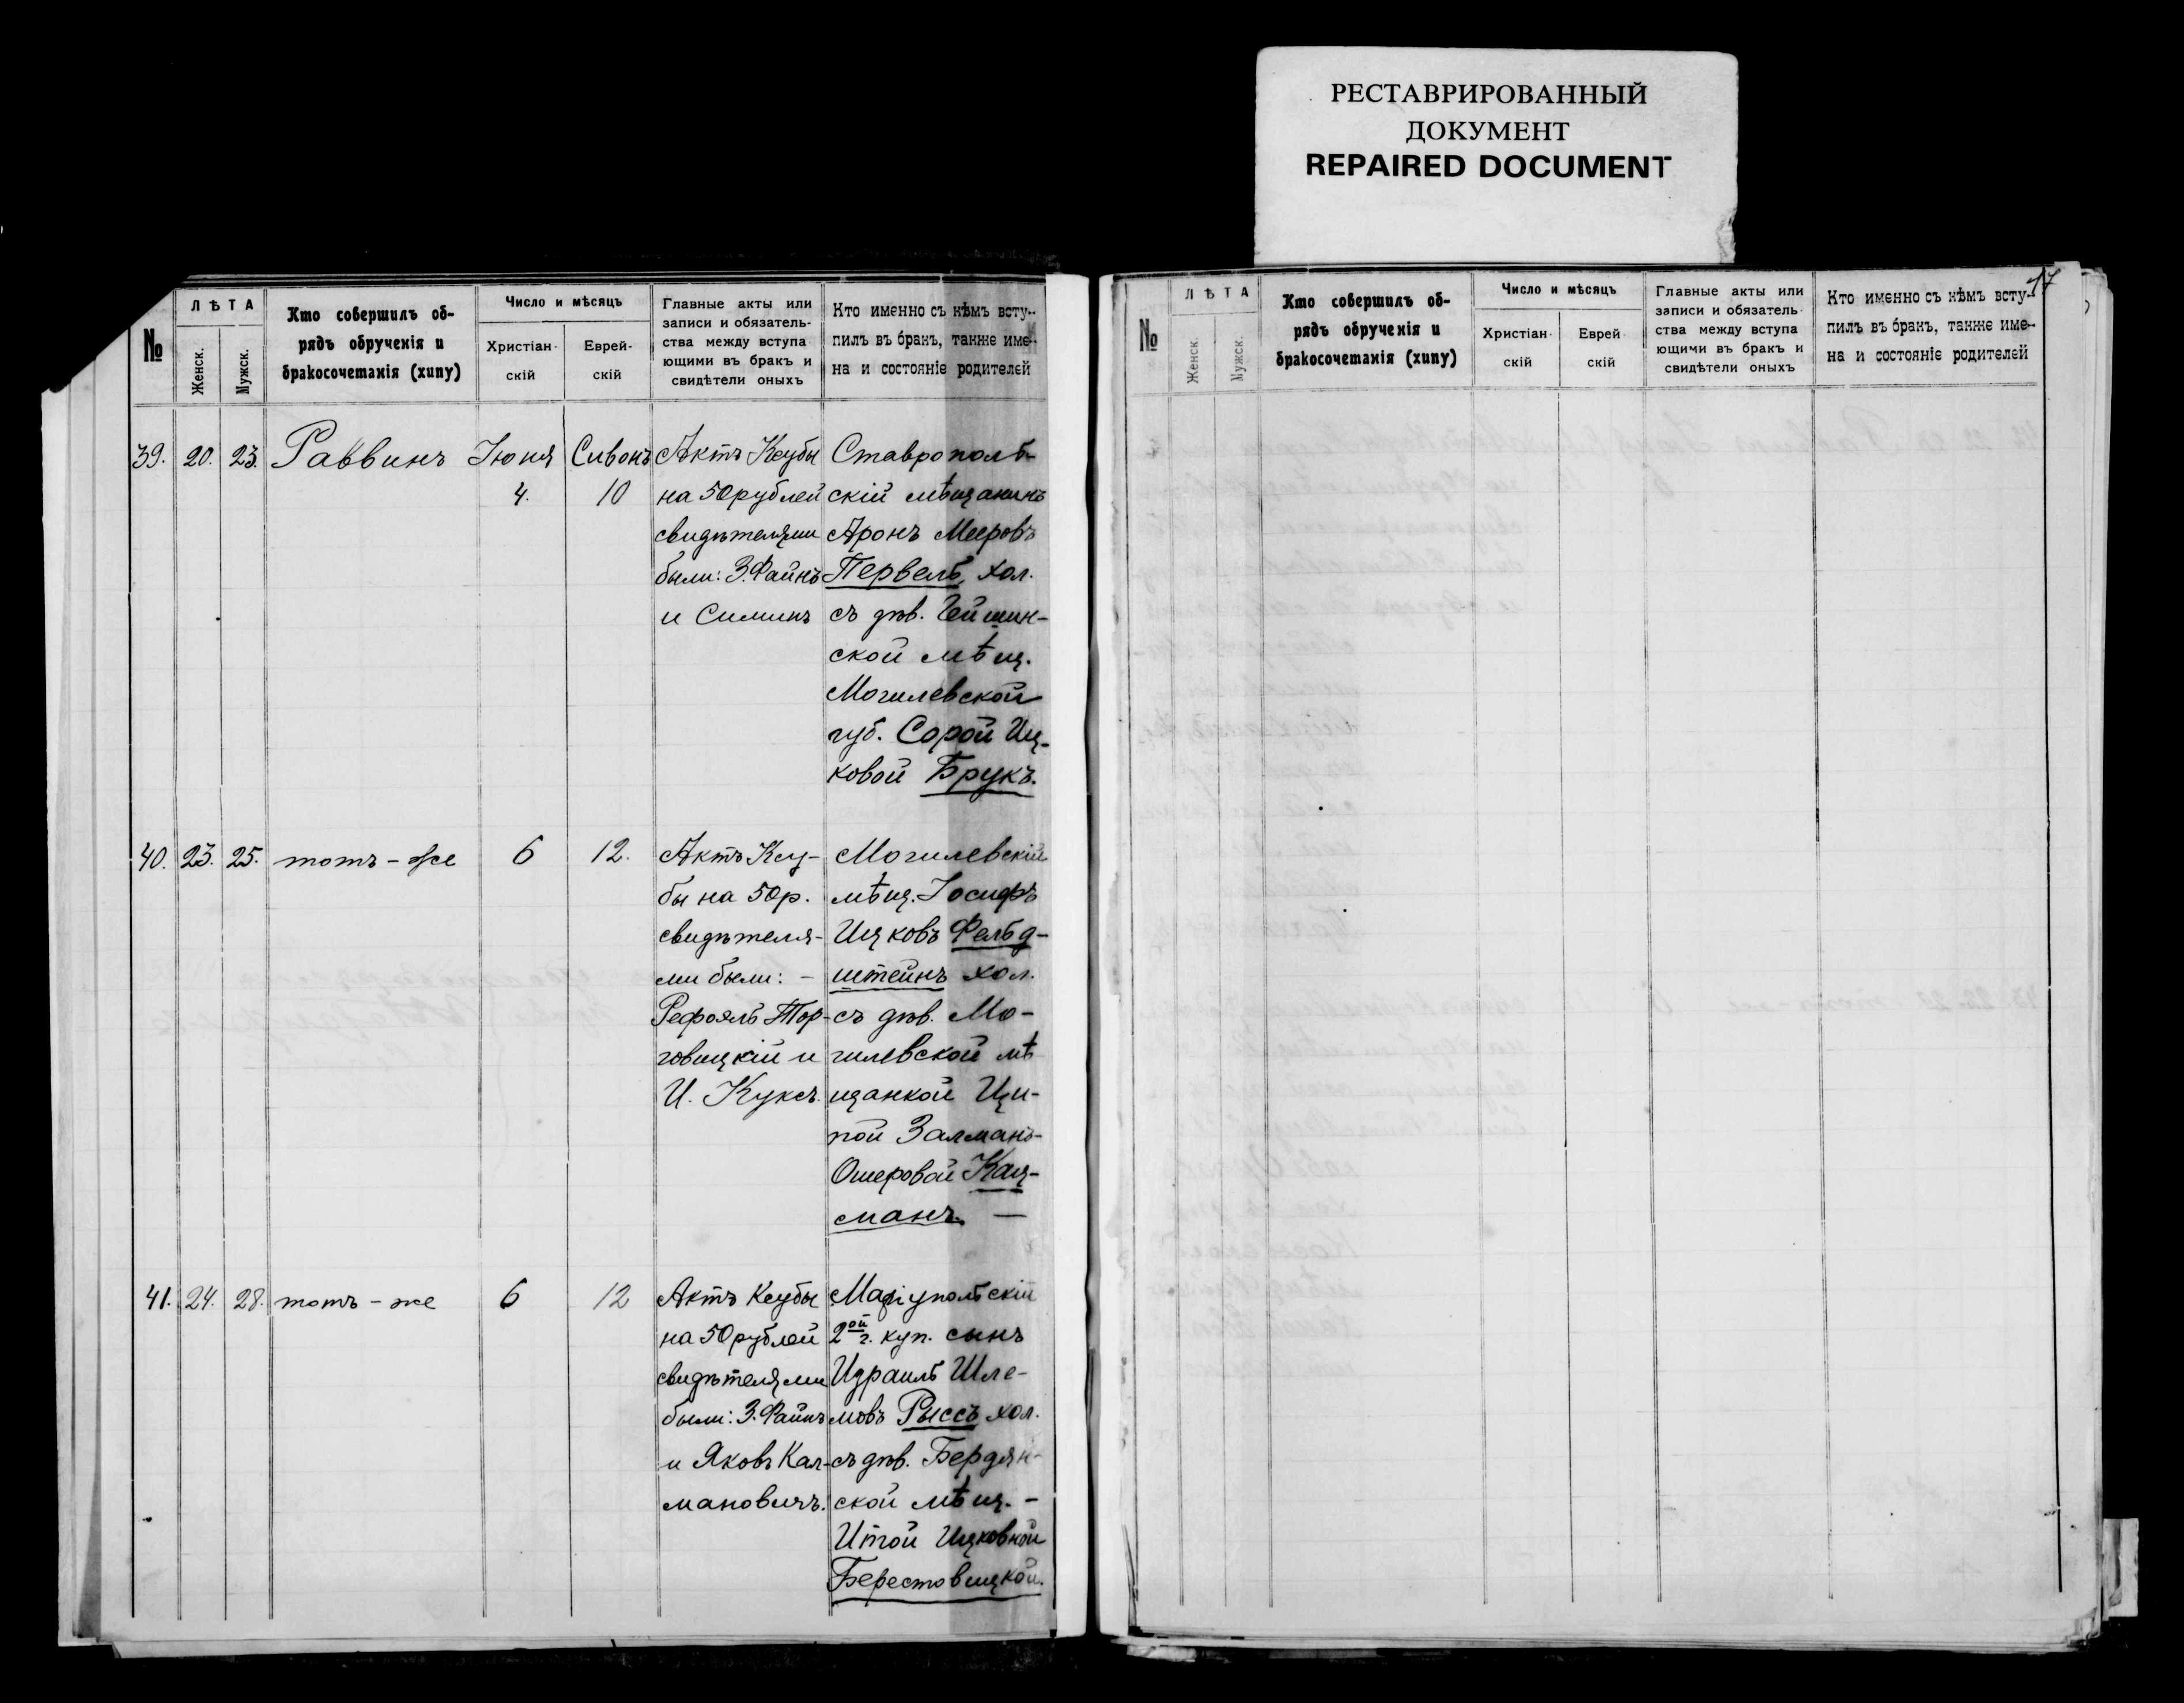 РЕСТАВРИРОВАННЫЙ
ДОКУМЕНТ
REPAIRED DOCUMENT
№
ЛѢТА
Женск.
Мужск.
Кто совершилъ об-
рядъ обрученія и
бракосочетанія (хипу)
Число и мѣсяцъ
Христіан-
скій
Еврей-
скій
Главные акты или
записи и обязатель-
ства между вступа
ющими въ бракъ и
свидѣтели оныхъ
Кто именно съ кѣмъ всту-
пилъ въ бракъ, также име-
на и состояніе родителей
39. 20. 23. Раввинъ Іюня 4. Сивонъ 10
Актъ Кеубы
на 50 рублей
свидѣтелями
были: З. Файнъ
и Симинъ
Ставрополь-
скій мѣщанинъ
Аронъ Мееровъ
Первель, хол.
съ дѣв.
ской мѣщ.
Могилевской
губ. Сорой Иц-
ковой Брукъ.
40. 23. 25. тотъ-же 6 12.
Актъ Кеу-
бы на 50 р.
свидѣтеля-
ми были: -
Рефоэль Тор-
говицкій и
И. Куксъ.
Могилевскій
мѣщ. Іосифъ
Ицковъ Фельд-
штейнъ хол.
съ дѣв. Мо-
гилевской мѣ
щанкой Ци-
пой Залманъ-
Ошеровой Кац-
манъ. —
41. 24. 28. тотъ-же 6 12
Актъ Кеубы
на 50 рублей
свидѣтелями
были: З. Файнъ
и Яковъ Кал-
мановичъ.
Маріупольскій
2ой г. куп. сынъ
Израиль Шле-
мовъ Рыссъ хол.
съ дѣв. Бердян-
ской мѣщ. -
Итой Ицковной
Берестовицкой.
17
№
ЛѢТА
Женск.
Мужск.
Кто совершилъ об-
рядъ обрученія и
бракосочетанія (хипу)
Число и мѣсяцъ
Христіан-
скій
Еврей-
скій
Главные акты или
записи и обязатель-
ства между вступа
ющими въ бракъ и
свидѣтели оныхъ
Кто именно съ кѣмъ всту-
пилъ въ бракъ, также име-
на и состояніе родителей